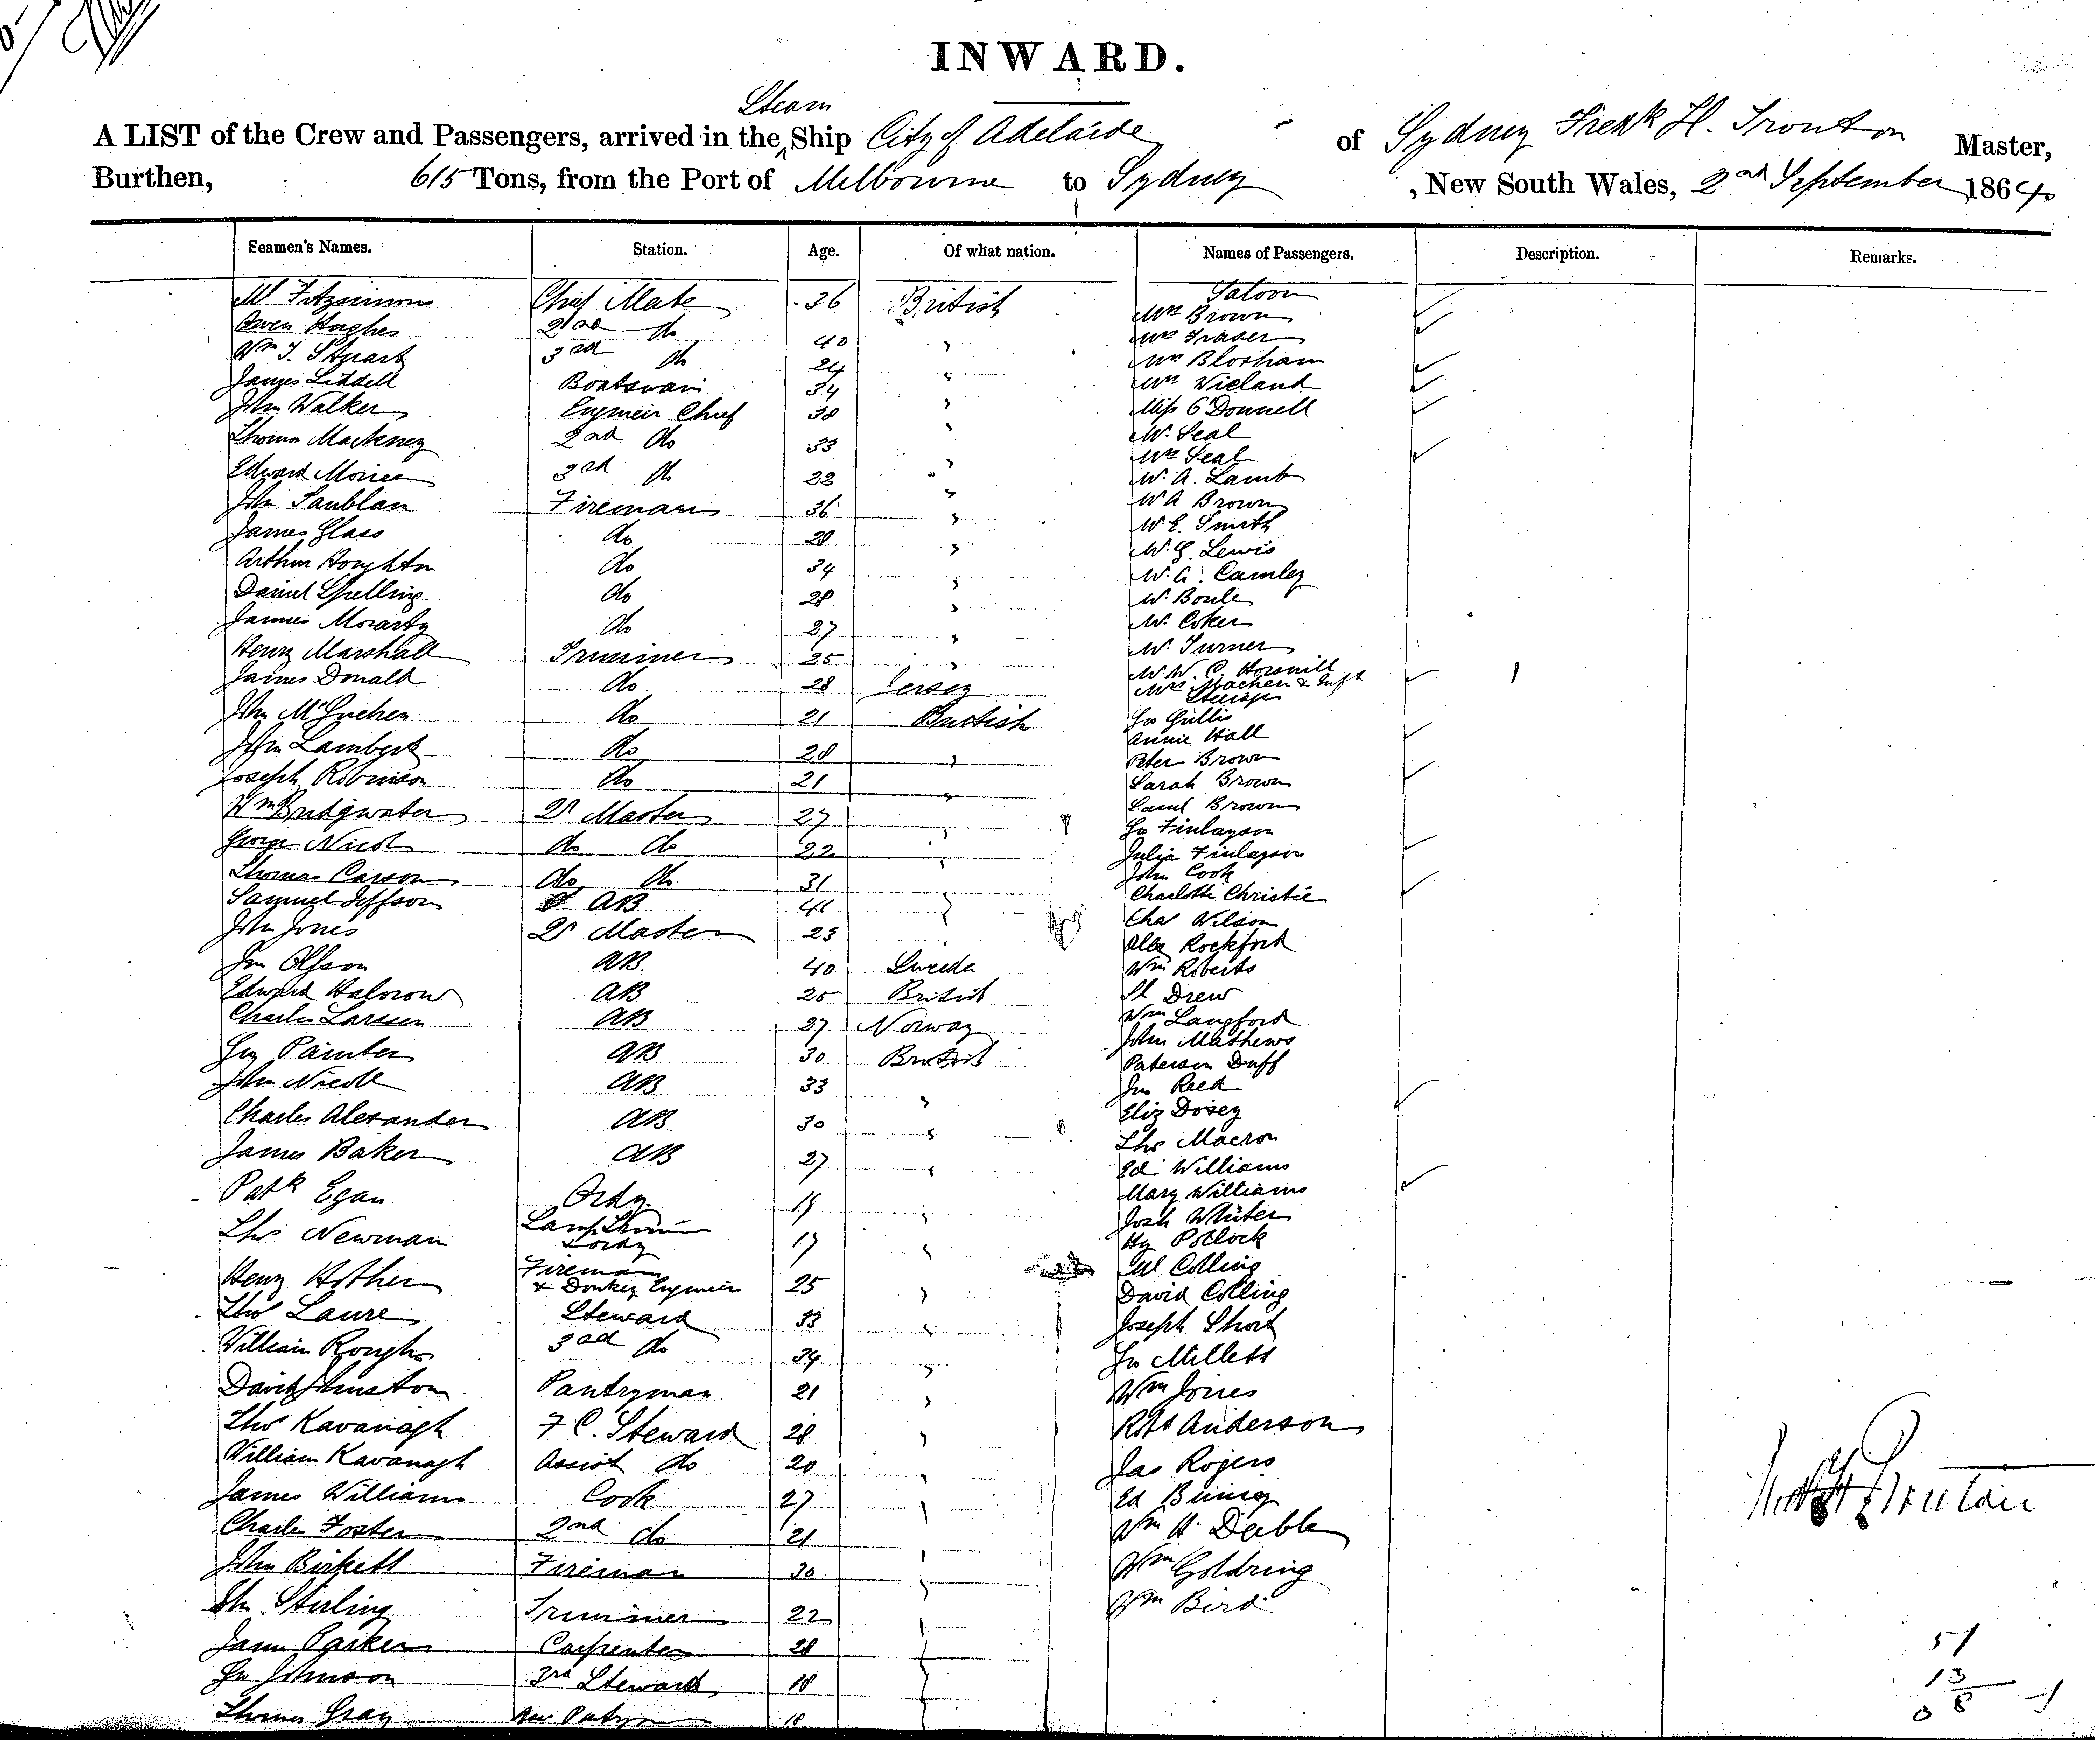 INWARD.
Steam
A LIST of the Crew and Passengers, arrived in the Ship City of Adelaide of Sydney Fredk H. Trouton Master,
Burthen, 615 Tons, from the Port of Melbourne to Sydney, New South Wales, 2nd September 1864.
Seamen's Names. Station. Age. Of what nation. Names of Passengers. Description. Remarks.
Saloon
M Fitzsimons Chief Mate 36 British Mrs Brown
Owen Hughes 2nd do 40 " Mrs Fraser
Wm T. Stuart 3rd do 24 " Mrs Bloxham
James Liddell Boatswain 34 " Mrs Vieland
John Walker Engineer Chief 38 " Miss O'Donnell
Thomas Mackney 2nd do 33 " Mr Seal
Mrs Seal
Edward Morice 3rd do 22 " Mr A. Lamb
John Fireman 36 " Mr A Brown
Mr E. Smith
James Glass do 28 " Mr G. Lewis
Arthur Houghton do 34 " Mr A. Camley
Daniel Spelling do 28 " Mr
James Morarty do 27 " Mr Coker
Henry Marshall Trimmer 25 " Mr Turner
Mr W. C. Hornvill
James Donald do 28 Jersey Mrs Machen & Inft
Steerage
John McGuehen do 21 British Jno Gillis
Annie Hall
John Lambert do 28 " Peter Brown
Joseph Robinson do 21 " Sarah Brown
Wm Bridgwater Qr Master 27 " Saml Brown
Jno Finlayson
George Nicol do do 22 " Julia Finlayson
Thomas Carson do do 31 " John Cook
Samuel Jeffson AB 41 " Charlotte Christie
John Jones Qr Master 23 Chas Wilson
Alex Rockford
Jno Olsson AB 40 Swede Wm Roberts
Edward Halcrow AB 25 British Drew
Charles Larssen AB 27 Norway Wm Langford
John Mathews
Hy Painter AB 30 British Paterson Duff
John Nicoll AB 33 " Jno Reed
Charles Alexander AB 30 " Eliz Dosey
Thos Macron
James Baker AB 27 " Ed Williams
Patk Egan Ordy 19 " Mary Williams
Josh Whiter
Thos Newman Lamp Trimr & ordy 17 " Hy Pollock
Henry Hother Fireman & Donkey Engineer 25 " M Colling
David Colling
Thos Laure Steward 33 " Joseph Short
William Rough 3rd do 34 " Jno Millett
David Johnston Pantryman 21 " Wm Jones
Thos Kavanagh F C. Steward 28 " Robt Anderson
William Kavanagh Assist do 20 " Jas Rogers
James Williams Cook 27 " Ed
Charles Foster 2nd do 21 " Wm H. Deeble
John Birkett Fireman 30 " Wm Goldring
Jno Stirling Trimmer 22 " Wm Bird
James Parker Carpenter 28 "
Jno Johnson 3rd Steward 18 "
Thomas Gray 18
Fredk H Trouton
51
13
8